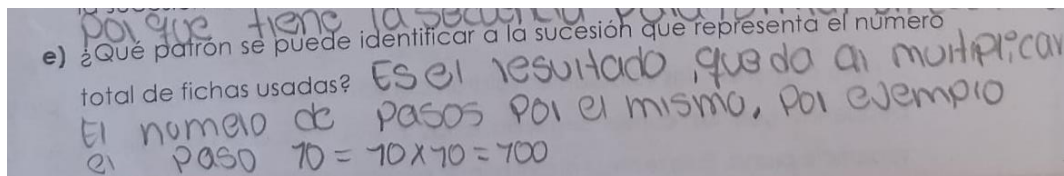 por que tiene la secuencia para
e) ¿Qué patrón se puede identificar a la sucesión que representa el número
total de fichas usadas? Es el resultado, que da al multiplicar
El numero de pasos por el mismo, por ejemplo
el paso 10 = 10x10 = 100